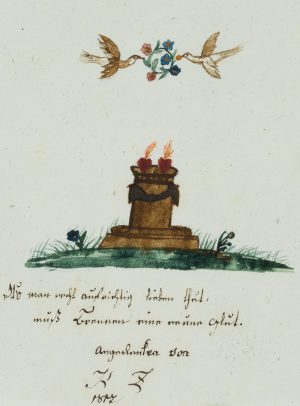 Wo man recht aufrichtig lieben thut,
muß Brennen eine reine Glut.
Angedenken von
1817